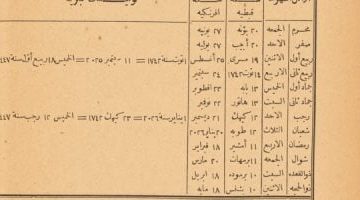 قبطية افرنكية
محرم الجمعه ٢٠ بؤنه ٢٧ يونيه
صفر الاحد ٢٠ أبيب ٢٧ يوليه
ربيع أول الاثنين ١٩ مسرى ٢٥ أغسطس ١ توت سنة ١٧٤٢ = ١١ سبتمبر ٢٠٢٥ = الخميس ١٨ ربيع أول سنة ١٤٤٧
ربيع ثانى الاربع ١٤ توت ١٧٤٢ ٢٤ سبتمبر
جماد أول الخميس ١٣ بابه ٢٣ اكتوبر
جماد ثانى السبت ١٣ هاتور ٢٢ نوفبر
رجب الاحد ١٢ كيهك ٢١ ديسمبر ١ يناير سنة ٢٠٢٦ = ٢٣ كيهك ١٧٤٢ = الخميس ١٢ رجب سنة ١٤٤٧
شعبان الثلاث ١٢ طوبه ٢٠ يناير ٢٠٢٦
رمضان الاربع ١١ أمشير ١٨ فبراير
شوال الجمعه ١١ برمهات ٢٠ مارس
ذوالقعده السبت ١٠ برموده ١٨ ابريل
ذوالحجه الاثنين ١٠ بشنس ١٨ مايه